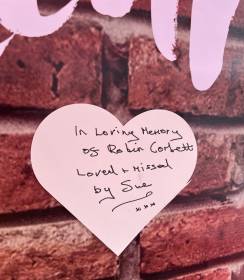 In Loving Memory
of Robin Corbett
Loved + Missed
by Sue
xxx